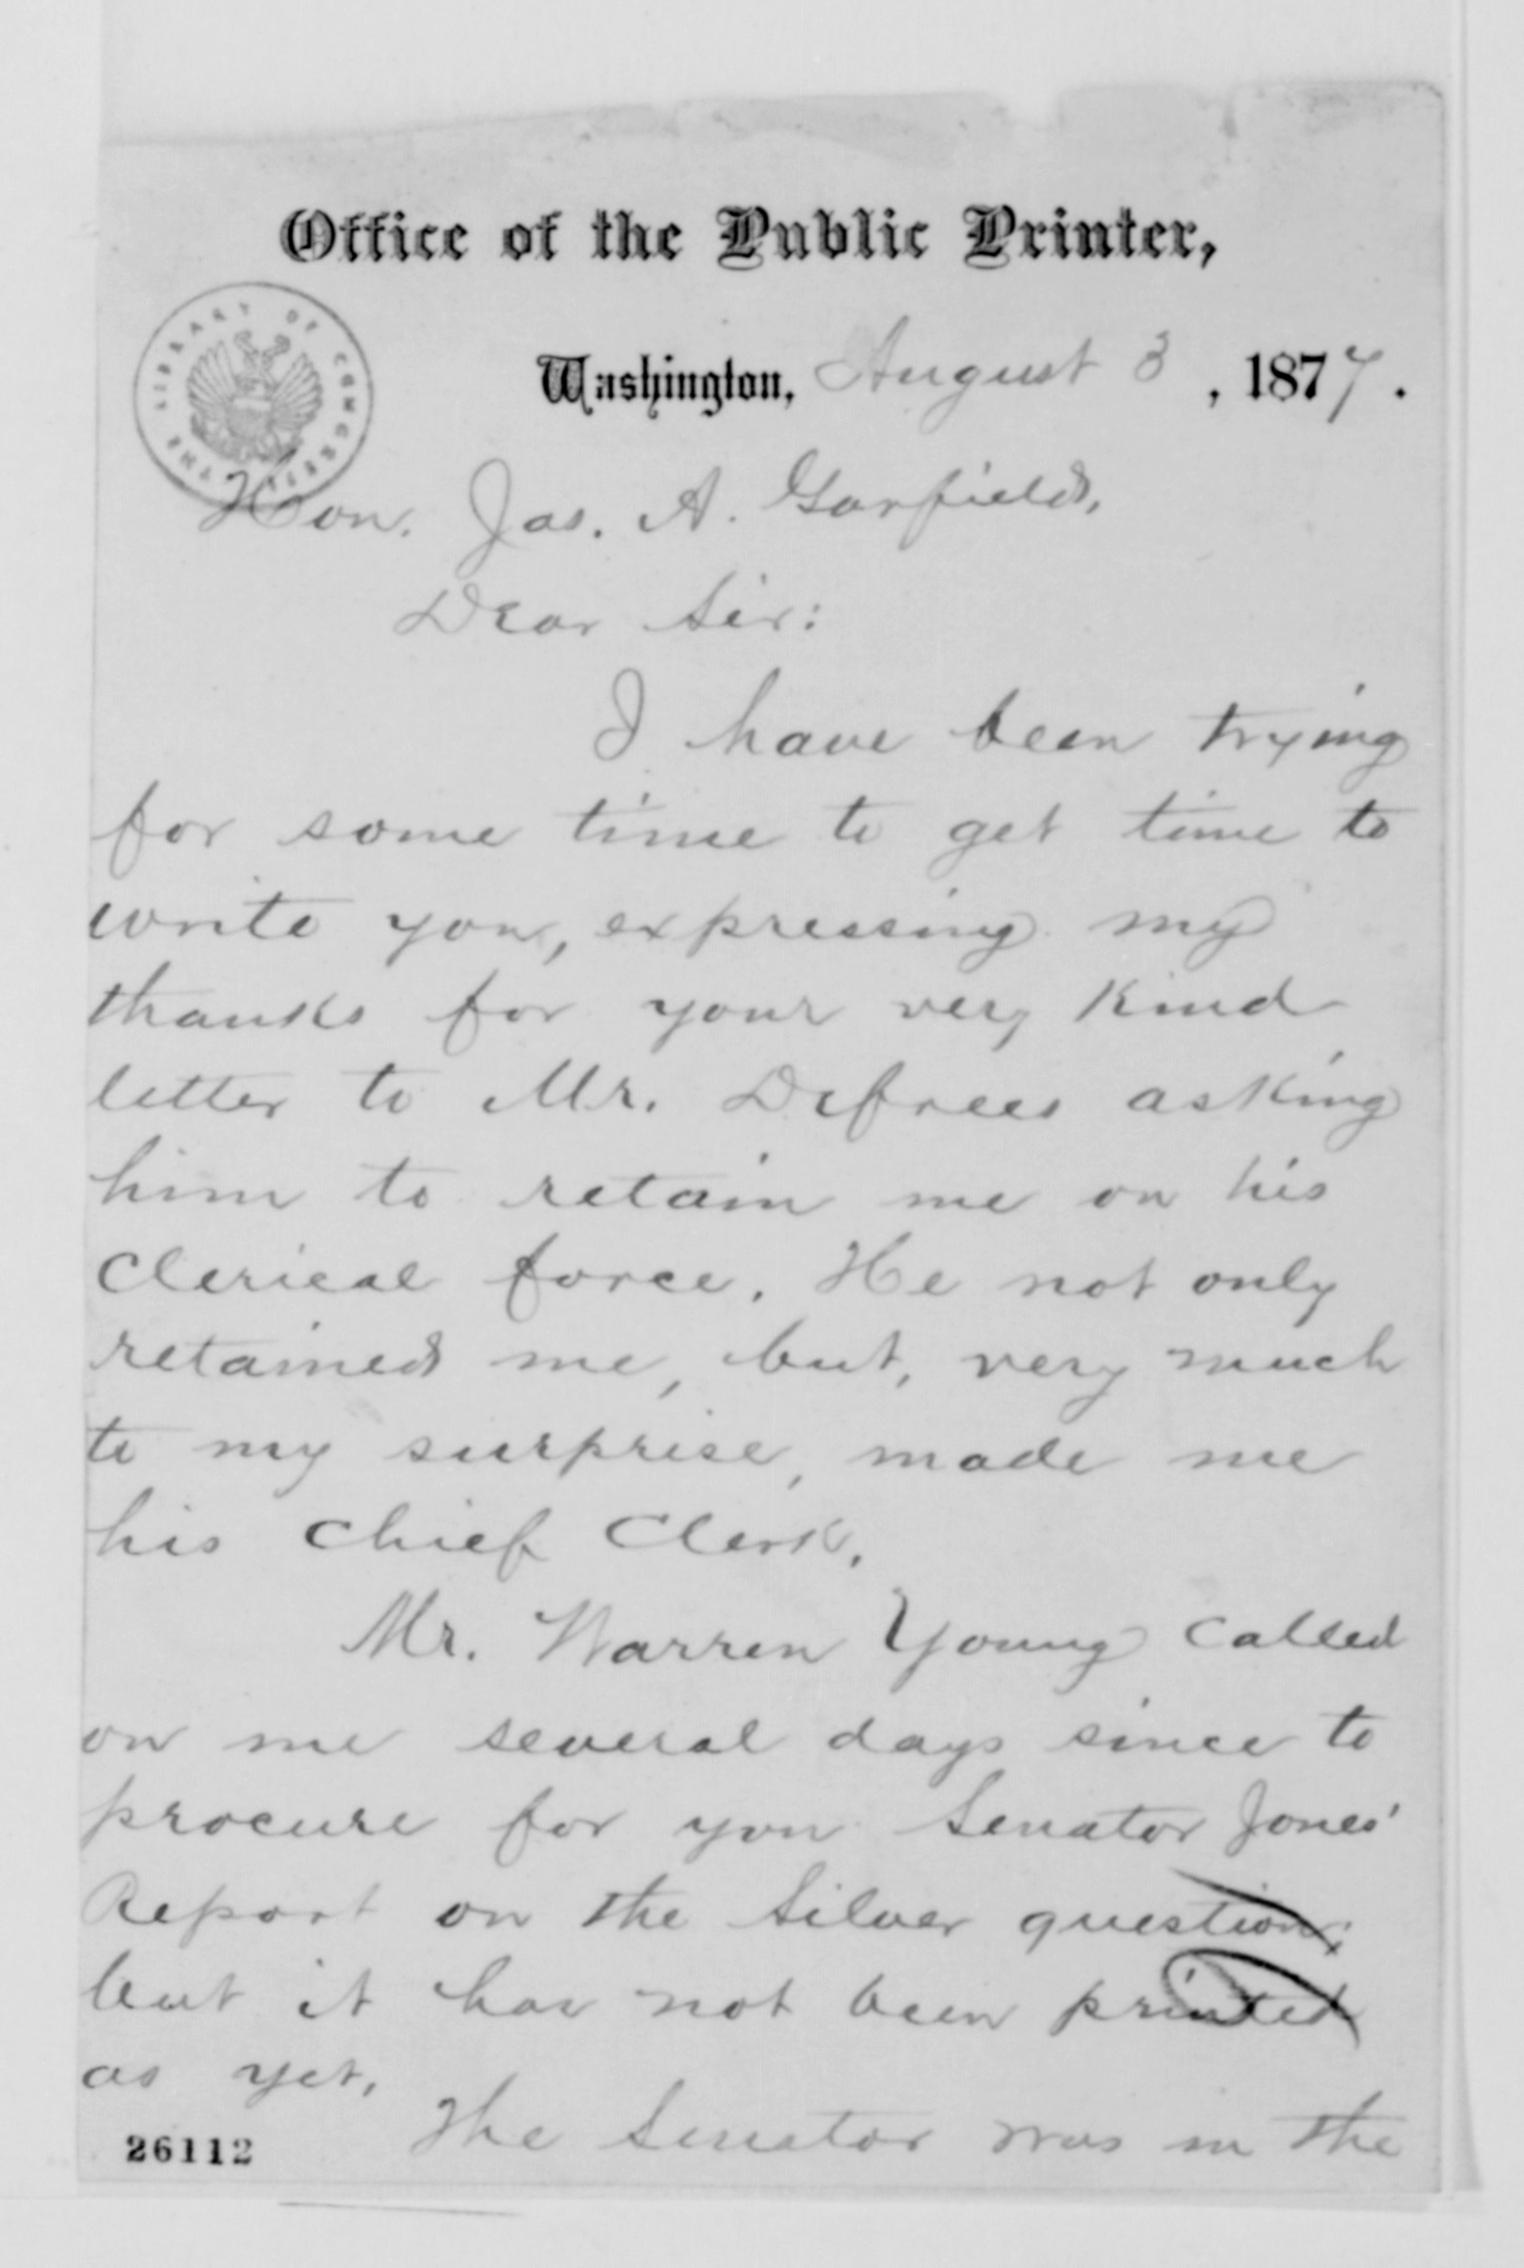 Office of the Public Printer,
THE LIBRARY OF CONGRESS
Washington, August 3, 1877.
Hon. Jas. A. Garfield,
Dear Sir:
I have been trying
for some time to get time to
write you, expressing my
thanks for your very kind
letter to Mr. Defrees asking
him to retain me on his
Clerical force. He not only
retained me, but, very much
to my surprise, made me
his Chief Clerk.
Mr. Warren Young called
on me several days since to
procure for you Senator Jones'
Report on the Silver question;
but it has not been printed
as yet.
The Senator was in the
26112